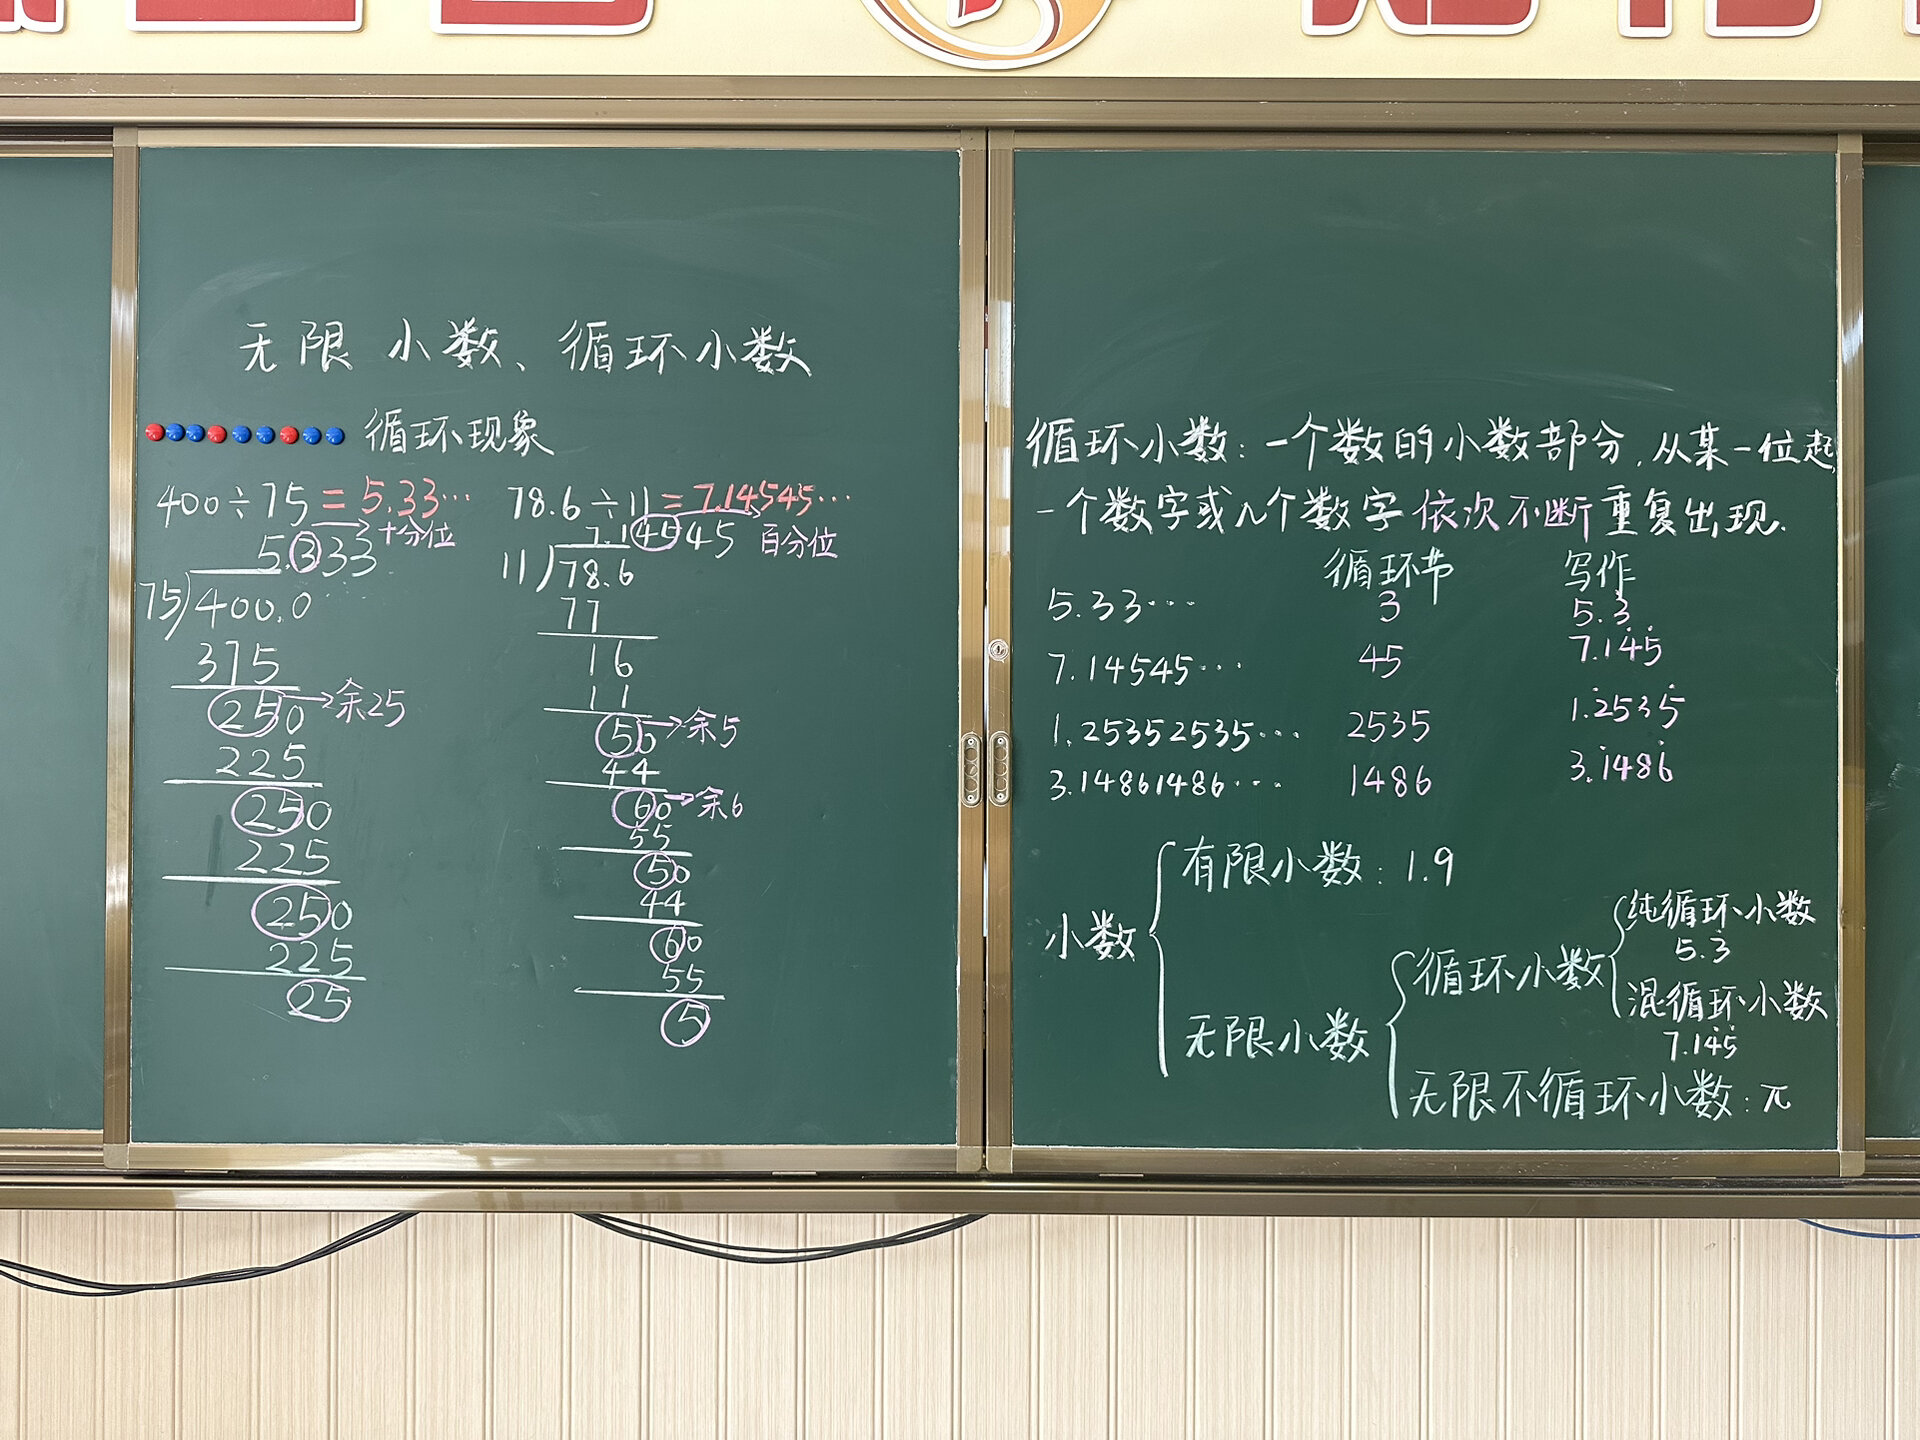 无限小数、循环小数
循环现象
400÷75=5.33…
十分位
5.333
75)400.0
375
250→余25
225
250
225
250
225
25
78.6÷11=7.14545…
7.14545 百分位
11)78.6
77
16
11
50→余5
44
60→余6
55
50
44
60
55
5
循环小数:一个数的小数部分,从某一位起,
一个数字或几个数字依次不断重复出现.
循环节 写作
5.33… 3 5.3̇
7.14545… 45 7.14̇5̇
1.25352535… 2535 1.2̇535̇
3.14861486… 1486 3.1̇486̇
小数
有限小数:1.9
无限小数
循环小数
纯循环小数
5.3̇
混循环小数
7.14̇5̇
无限不循环小数:π